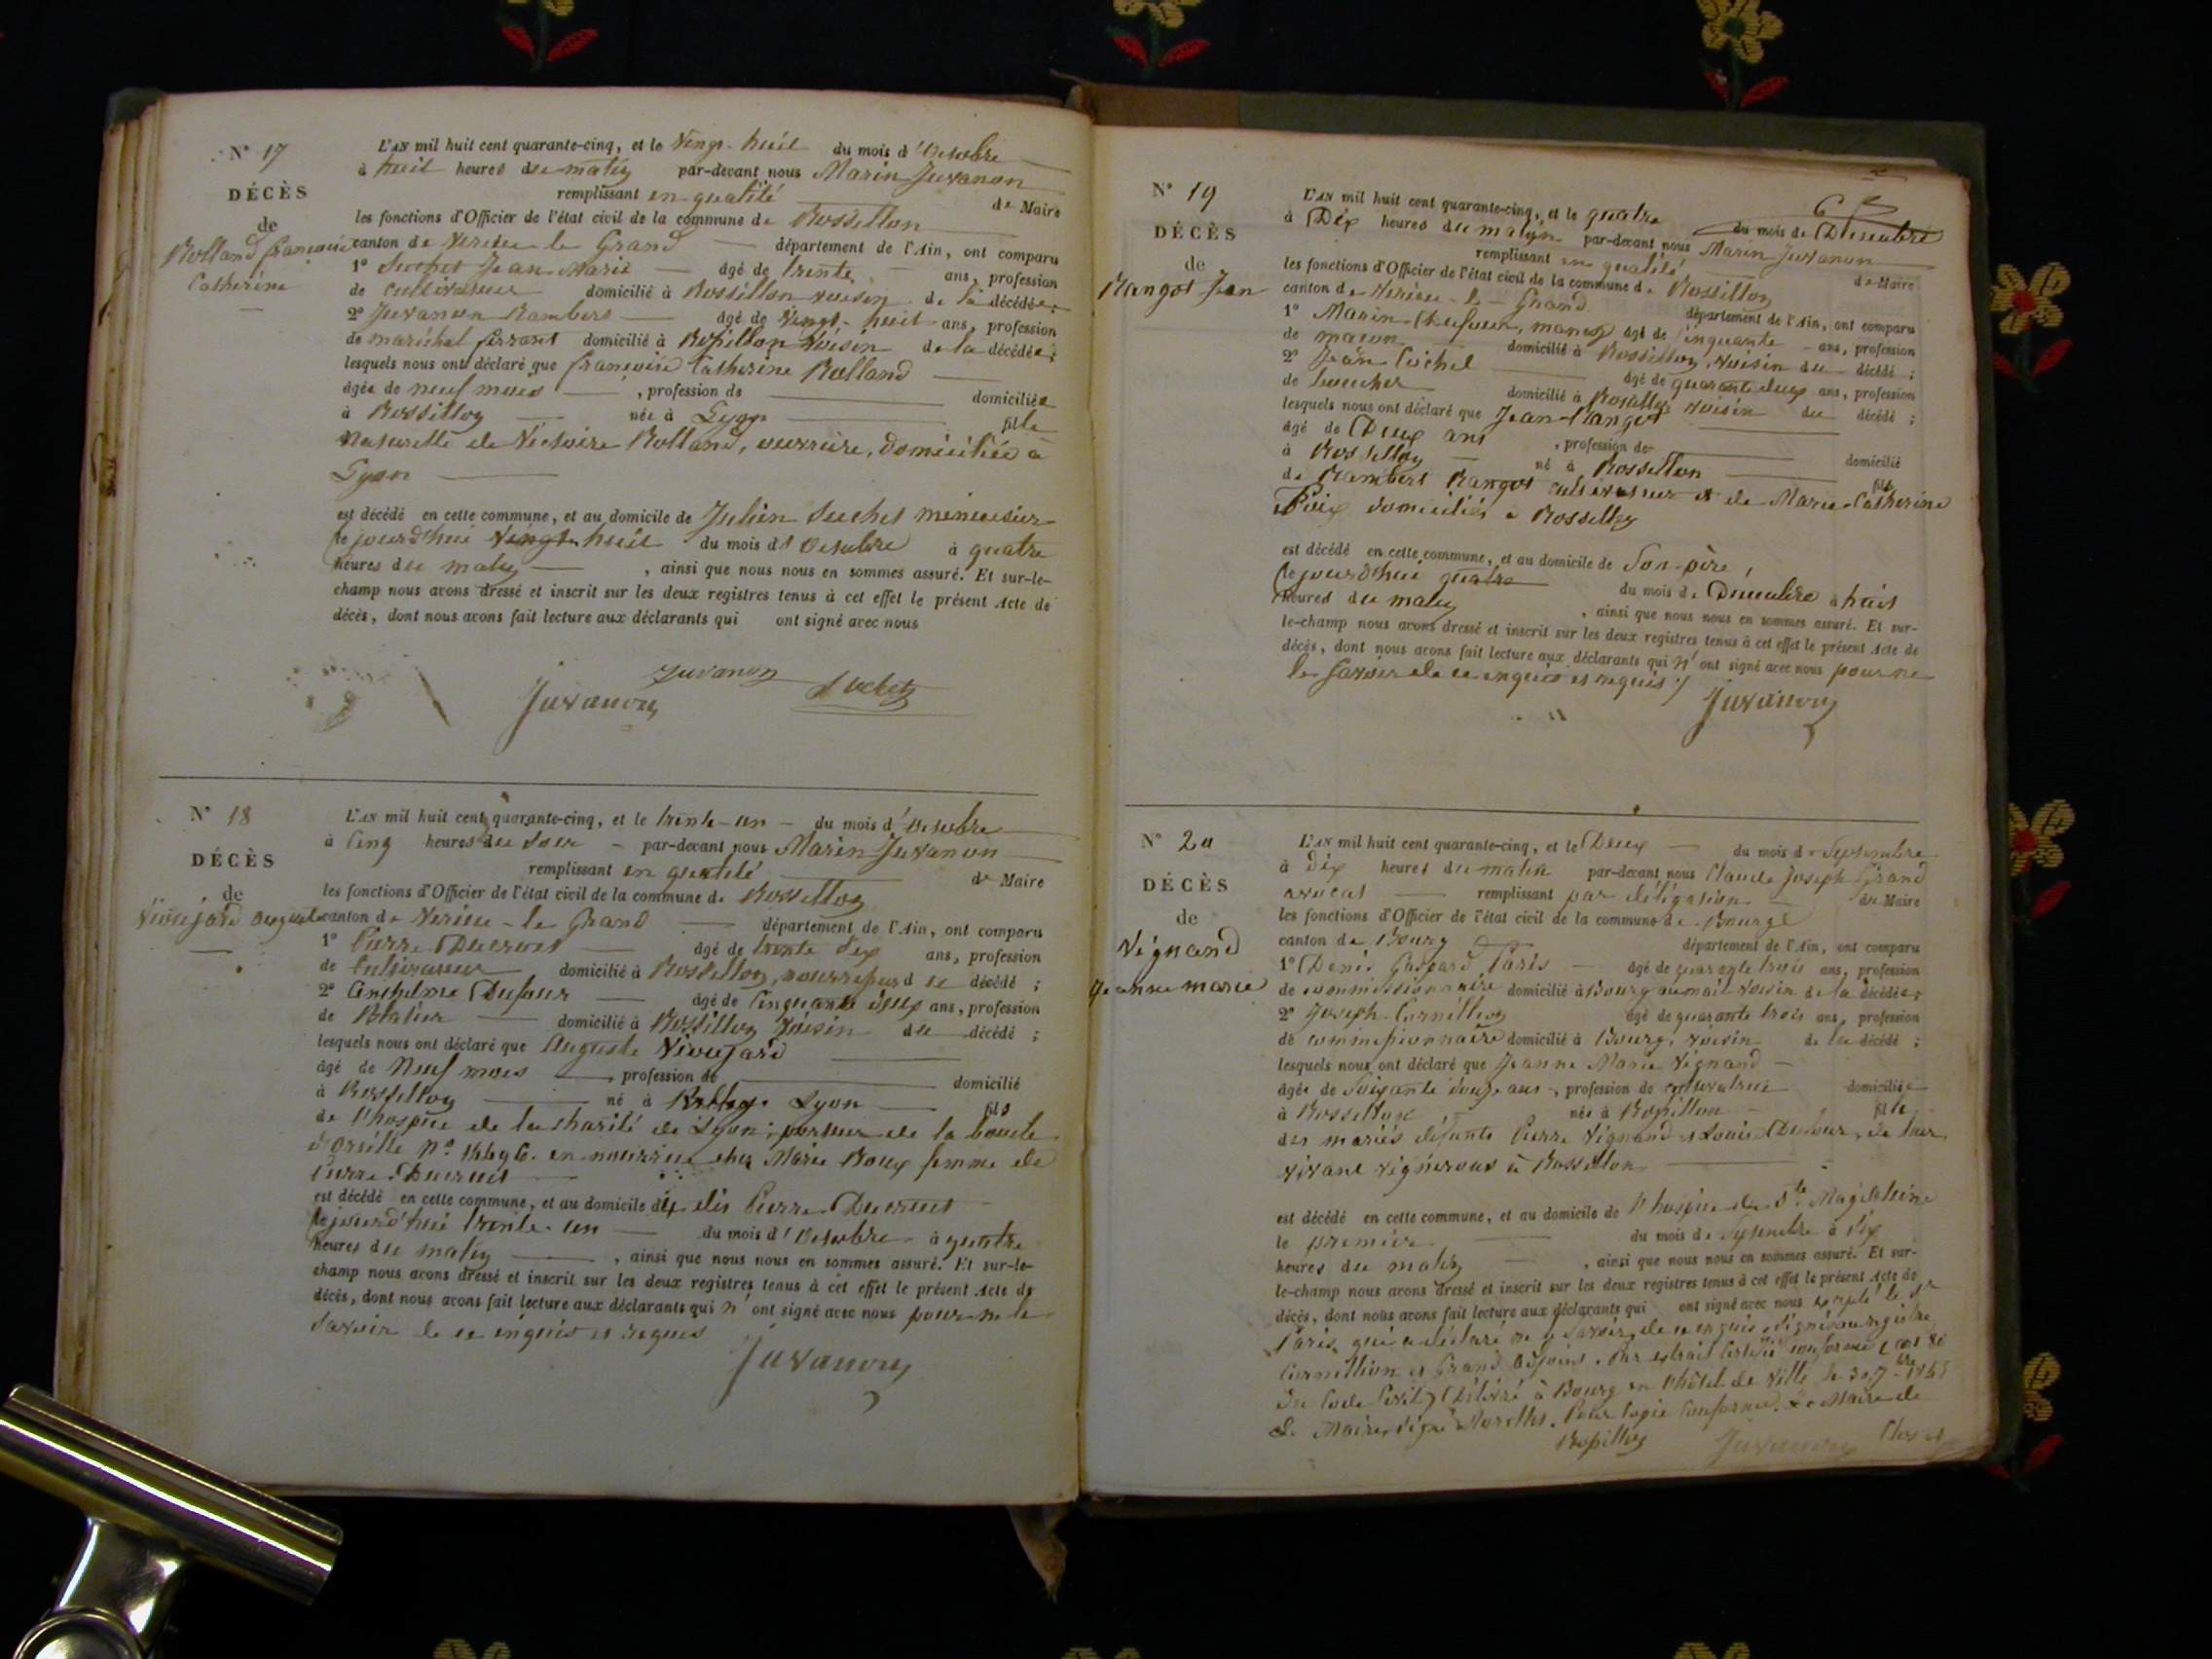 N° 17
DÉCÈS
de
Rolland françoise
Catherine
L'AN mil huit cent quarante-cinq, et le vingt-huit du mois d'octobre
à huit heures du matin par-devant nous Marin Juvanon
remplissant en qualité de Maire
les fonctions d'Officier de l'état civil de la commune de Rossillon
canton de Virieu le Grand département de l'Ain, ont comparu
1° Suchet Jean Marie âgé de trente ans, profession
de cultivateur domicilié à Rossillon voisin de la décédée;
2° Juvanon Rambert âgé de vingt-huit ans, profession
de maréchal ferrant domicilié à Rossillon voisin de la décédée;
lesquels nous ont déclaré que françoise Catherine Rolland
âgée de neuf mois, profession de domiciliée
à Rossillon née à Lyon fille
naturelle de Victoire Rolland, ouvrière, domiciliée à
Lyon
est décédé en cette commune, et au domicile de Julien Suchet menuisier
le jourd'hui vingt huit du mois d'octobre à quatre
heures du matin, ainsi que nous nous en sommes assuré. Et sur-le-
champ nous avons dressé et inscrit sur les deux registres tenus à cet effet le présent Acte de
décès, dont nous avons fait lecture aux déclarants qui ont signé avec nous
Juvanon
Juvanon Suchet
N° 18
DÉCÈS
de
auguste
L'AN mil huit cent quarante-cinq, et le trente-un du mois d'octobre
à cinq heures du soir par-devant nous Marin Juvanon
remplissant en qualité de Maire
les fonctions d'Officier de l'état civil de la commune de Rossillon
canton de Virieu-le Grand département de l'Ain, ont comparu
1° Pierre Ducruet âgé de trente dix ans, profession
de Cultivateur domicilié à Rossillon, décédé;
2° Anthelme Dufour âgé de cinquante deux ans, profession
de domicilié à Rossillon voisin du décédé;
lesquels nous ont déclaré que Auguste
âgé de Neuf mois, profession de domicilié
à Rossillon né à Lyon fils
de l'hospice de la charité de Lyon, porteur de la boucle
d'oreille n° en nourrice chez Marie Roux femme de
Pierre Ducruet
est décédé en cette commune, et au domicile du dit Pierre Ducruet
le jourd'hui trente-un du mois d'octobre à quatre
heures du matin, ainsi que nous nous en sommes assuré. Et sur-le-
champ nous avons dressé et inscrit sur les deux registres tenus à cet effet le présent Acte de
décès, dont nous avons fait lecture aux déclarants qui n'ont signé avec nous pour ne le
savoir de ce enquis et requis
Juvanon
6
N° 19
DÉCÈS
de
Rangot Jean
L'AN mil huit cent quarante-cinq, et le quatre du mois de Décembre
à Dix heures du matin par-devant nous Marin Juvanon
remplissant en qualité de Maire
les fonctions d'Officier de l'état civil de la commune de Rossillon
canton de Virieu-le-Grand département de l'Ain, ont comparu
1° Marin âgé de cinquante ans, profession
de maçon domicilié à Rossillon, voisin du décédé;
2° Jean Cochet âgé de quarante deux ans, profession
de boucher domicilié à Rossillon voisin du décédé;
lesquels nous ont déclaré que Jean Rangot
âgé de Deux ans, profession de domicilié
à Rossillon né à Rossillon fils
de Rambert Rangot cultivateur et de Marie Catherine
domiciliés à Rossillon
est décédé en cette commune, et au domicile de Son père,
le jourd'hui quatre du mois de Décembre à huit
heures du matin, ainsi que nous nous en sommes assuré. Et sur-
le-champ nous avons dressé et inscrit sur les deux registres tenus à cet effet le présent Acte de
décès, dont nous avons fait lecture aux déclarants qui n'ont signé avec nous pour ne
le savoir de ce enquis et requis
Juvanon
N° 20
DÉCÈS
de
Vignand
Jeanne marie
L'AN mil huit cent quarante-cinq, et le Deux du mois de Septembre
à dix heures du matin par-devant nous Claude Joseph Grand
avocat remplissant par délégation du Maire
les fonctions d'Officier de l'état civil de la commune de Bourg
canton de Bourg département de l'Ain, ont comparu
1° Denis Gaspard Paris âgé de quarante trois ans, profession
de commissionnaire domicilié à Bourg voisin de la décédée;
2° Joseph Cornillion âgé de quarante trois ans, profession
de commissionnaire domicilié à Bourg, voisin de la décédé;
lesquels nous ont déclaré que Jeanne Marie Vignand
âgée de soixante douze ans, profession de domiciliée
à Rossillon née à Rossillon fille
des mariés défunts Pierre Vignand et Louise Dufour, de leur
vivant vignerons à Rossillon
est décédé en cette commune, et au domicile de l'hospice de Ste Magdeleine
le premier du mois de Septembre à dix
heures du matin, ainsi que nous nous en sommes assuré. Et sur-
le-champ nous avons dressé et inscrit sur les deux registres tenus à cet effet le présent Acte de
décès, dont nous avons fait lecture aux déclarants qui ont signé avec nous excepté le Sr
Paris, qui a déclaré ne le savoir, de ce enquis. Signé au registre
Cornillion et Grand adjoint. Par extrait certifié conforme (art 80
du Code Civil) Délivré à Bourg en l'hôtel de ville le 30 7bre 1845
Le Maire, signé. Pour copie conforme. Le Maire de
Rossillon Juvanon